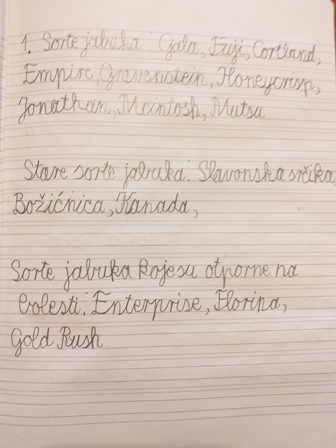 1. Sorte jabuka Gala, Fuji, Cortland,
Empire, Gravenstein, Honeycrisp,
Jonathan, Mcintosh, Mutsu
Stare sorte jabuka. Slavonska srčika
Božićnica, Kanada,
Sorte jabuka koje su otporne na
bolesti. Enterprise, Florina,
Gold Rush